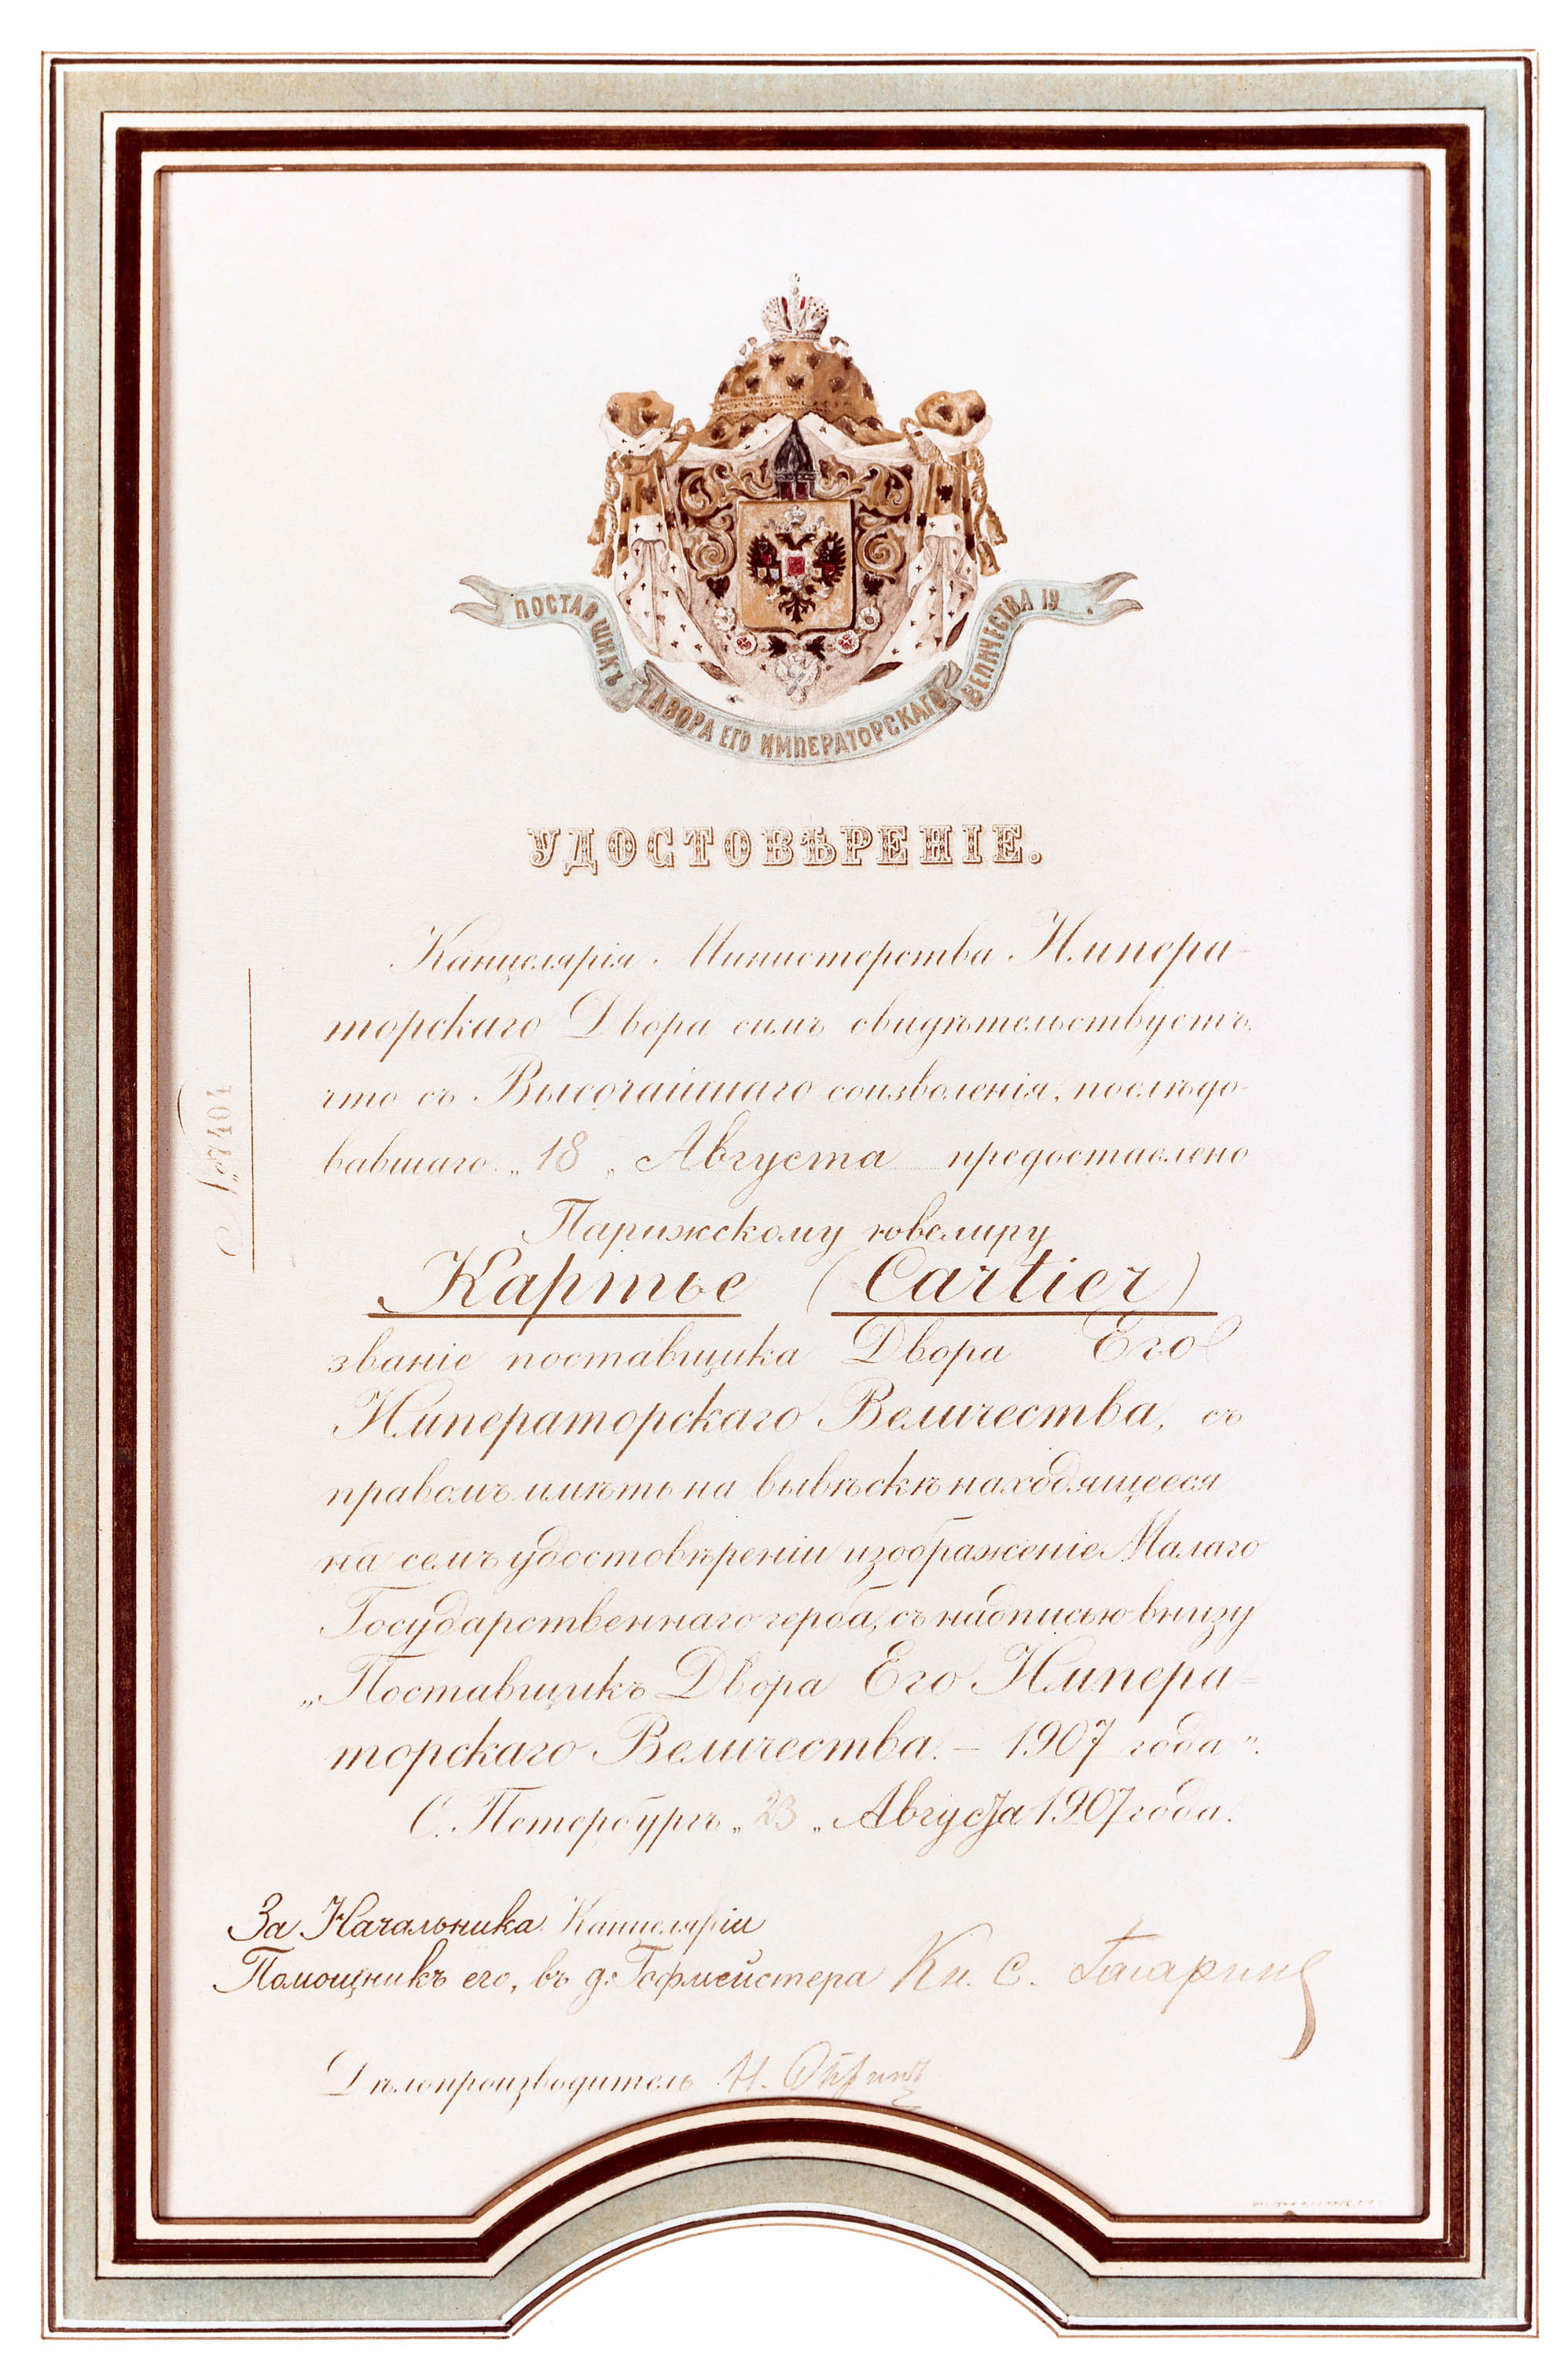 ПОСТАВЩИКЪ ДВОРА ЕГО ИМПЕРАТОРСКАГО ВЕЛИЧЕСТВА 19
УДОСТОВѢРЕНІЕ.
Канцелярія Министерства Импера-
торскаго Двора симъ свидѣтельствуетъ,
что съ Высочайшаго соизволенія, послѣдо-
вавшаго „18„ Августа предоставлено
Парижскому ювелиру
Картье (Cartier)
званіе поставщика Двора Его
Императорскаго Величества, съ
правомъ имѣть на вывѣскѣ находящееся
на семъ удостовѣреніи изображеніе Малаго
Государственнаго герба, съ надписью внизу
„Поставщикъ Двора Его Импера-
торскаго Величества. – 1907 года".
С. Петербургъ „23„ Августа 1907 года.
№ 7404
За Начальника Канцеляріи
Помощникъ его, въ д: Гофмейстера Кн. С. Гагаринъ
Дѣлопроизводитель Н.